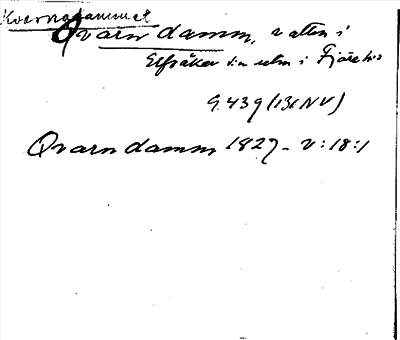 Kvarndammet
Qvarn damm, vatten i
Elfsåker s:n utm i Fjäre hd
G. 439 (131 NV)
Qvarn damm 1827 - V:18:1